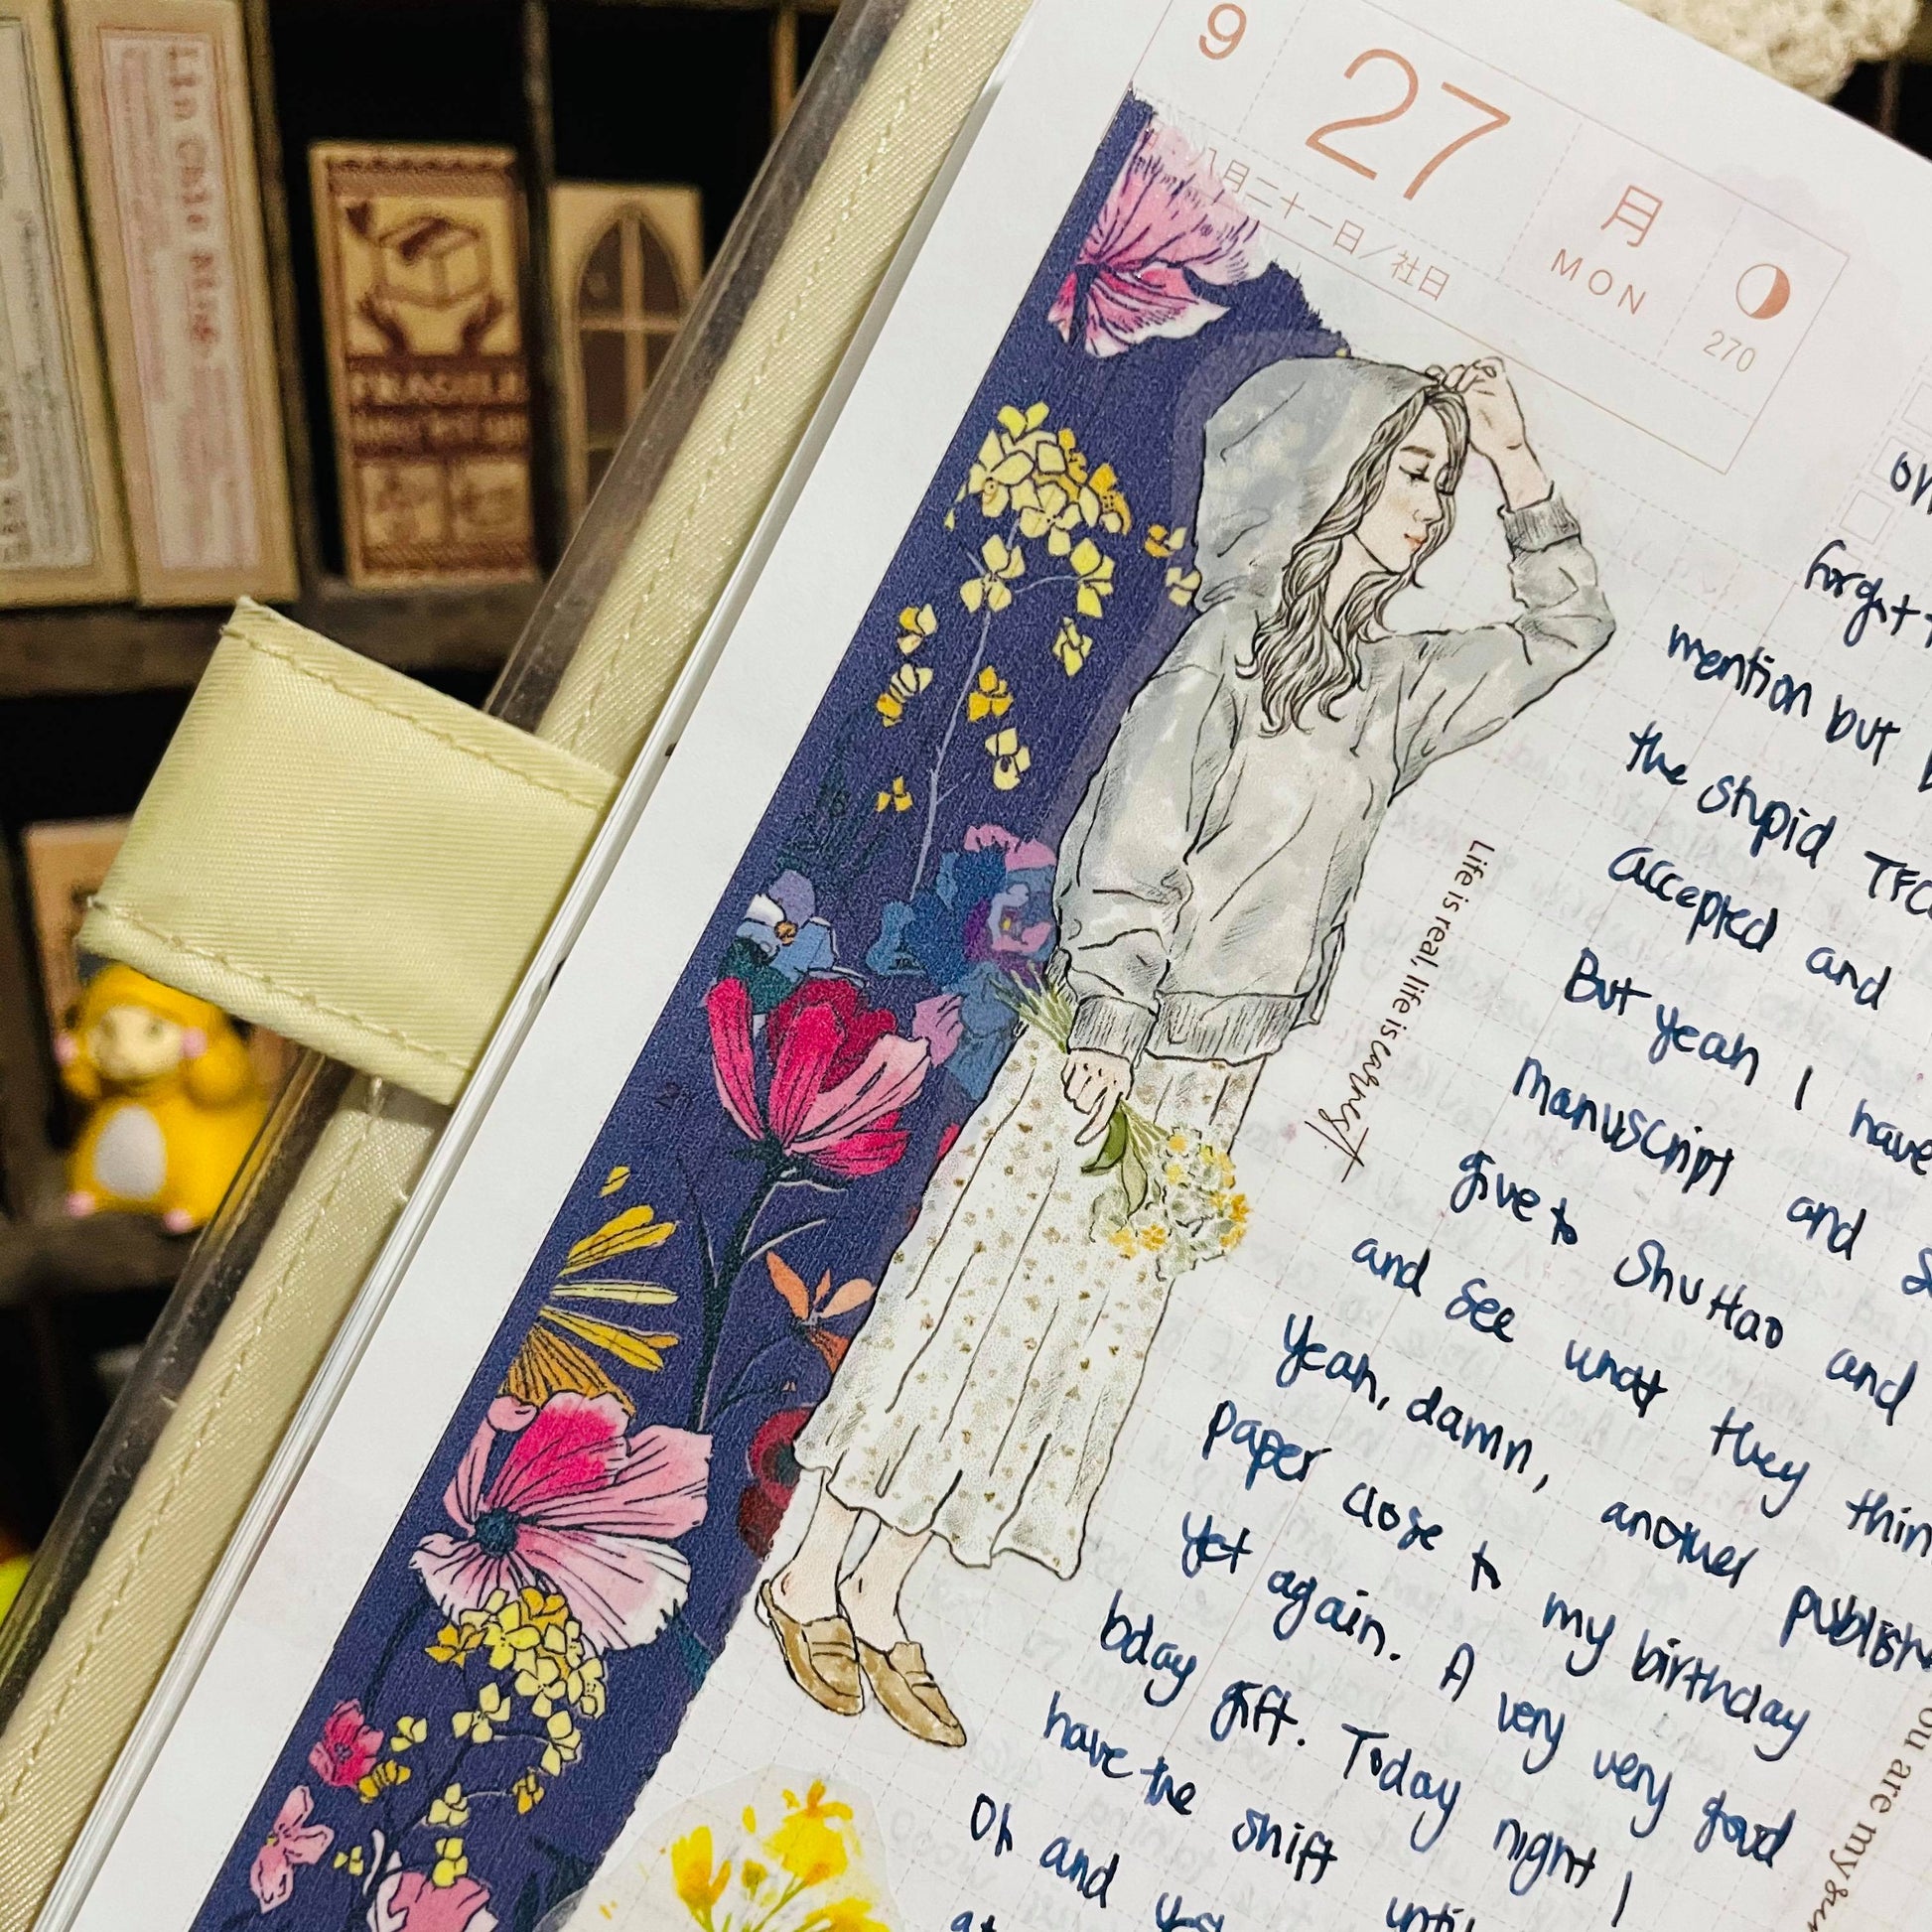 Lin Chia Ning
FRAGILE
9
27
月
MON
270
八月二十一日／社日
Life is real, life is earnest
oh
forgot
mention but
the stupid TFC
accepted and
But yeah I have
manuscript and
give to Shu Hao and
and see what they thin
Yeah, damn, another publish
paper close to my birthday
yet again. A very very good
bday gift. Today night I
have the shift until
Oh and yes
at
ou are my sun